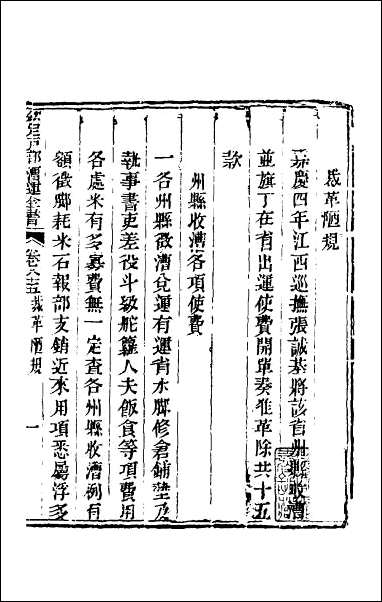 裁革陋規
嘉慶四年江西巡撫張誠基將該省州縣收漕
並旗丁在省出運使費開單奏准革除共十五
款
州縣收漕各項使費
一各州縣徵漕兌運有運省水腳修倉鋪墊及
執事書吏差役斗級舵籮人夫飯食等項費用
各處米有多寡費無一定查各州縣收漕例有
額徵腳耗米石報部支銷近來用項悉屬浮多
欽定戶部漕運全書
卷八十五 裁革陋規
一